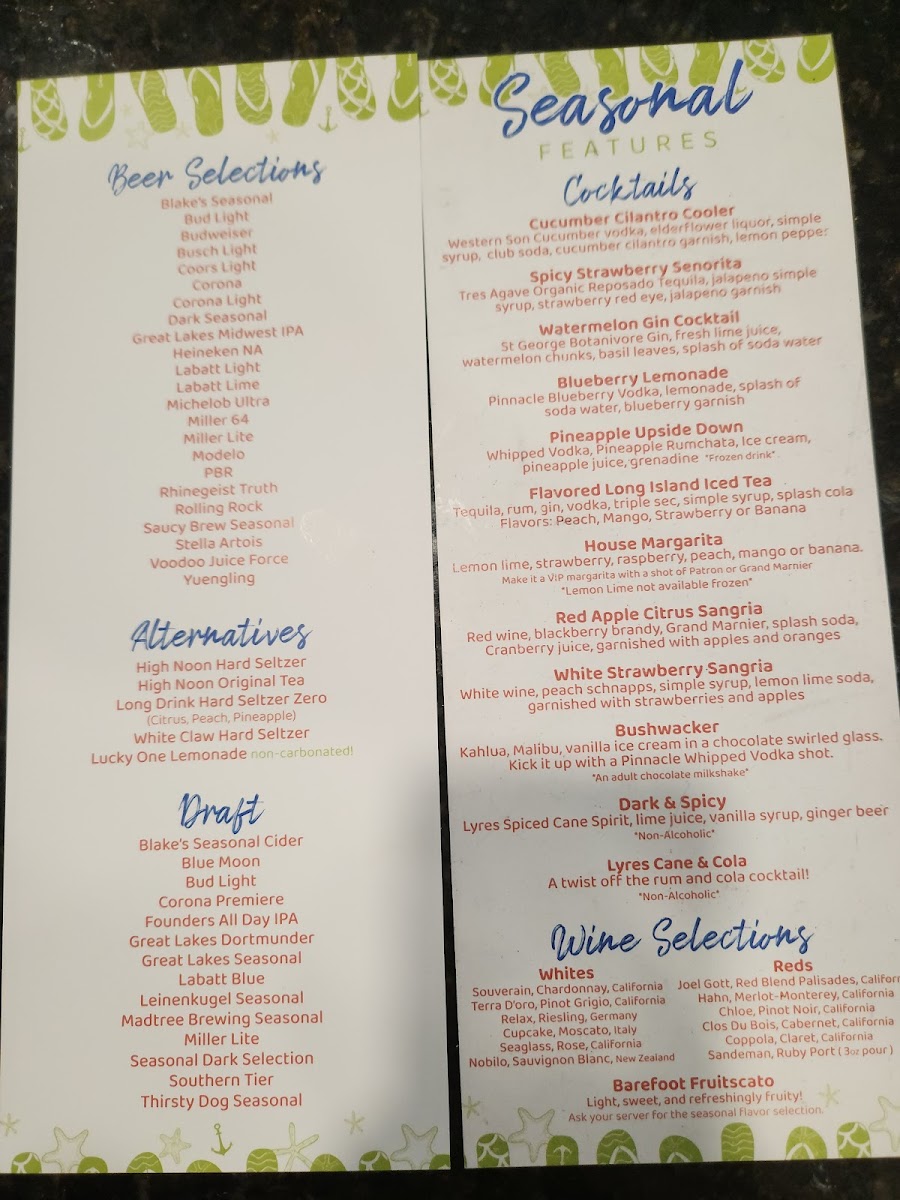 Beer Selections
Blake's Seasonal
Bud Light
Budweiser
Busch Light
Coors Light
Corona
Corona Light
Dark Seasonal
Great Lakes Midwest IPA
Heineken NA
Labatt Light
Labatt Lime
Michelob Ultra
Miller 64
Miller Lite
Modelo
PBR
Rhinegeist Truth
Rolling Rock
Saucy Brew Seasonal
Stella Artois
Voodoo Juice Force
Yuengling
Alternatives
High Noon Hard Seltzer
High Noon Original Tea
Long Drink Hard Seltzer Zero
(Citrus, Peach, Pineapple)
White Claw Hard Seltzer
Lucky One Lemonade non-carbonated!
Draft
Blake's Seasonal Cider
Blue Moon
Bud Light
Corona Premiere
Founders All Day IPA
Great Lakes Dortmunder
Great Lakes Seasonal
Labatt Blue
Leinenkugel Seasonal
Madtree Brewing Seasonal
Miller Lite
Seasonal Dark Selection
Southern Tier
Thirsty Dog Seasonal
Seasonal
FEATURES
Cocktails
Cucumber Cilantro Cooler
Western Son Cucumber vodka, elderflower liquor, simple
syrup, club soda, cucumber cilantro garnish, lemon pepper
Spicy Strawberry Senorita
Tres Agave Organic Reposado Tequila, jalapeno simple
syrup, strawberry red eye, jalapeno garnish
Watermelon Gin Cocktail
St George Botanivore Gin, fresh lime juice,
watermelon chunks, basil leaves, splash of soda water
Blueberry Lemonade
Pinnacle Blueberry Vodka, lemonade, splash of
soda water, blueberry garnish
Pineapple Upside Down
Whipped Vodka, Pineapple Rumchata, Ice cream,
pineapple juice, grenadine *Frozen drink*
Flavored Long Island Iced Tea
Tequila, rum, gin, vodka, triple sec, simple syrup, splash cola
Flavors: Peach, Mango, Strawberry or Banana
House Margarita
Lemon lime, strawberry, raspberry, peach, mango or banana.
Make it a VIP margarita with a shot of Patron or Grand Marnier
*Lemon Lime not available frozen*
Red Apple Citrus Sangria
Red wine, blackberry brandy, Grand Marnier, splash soda,
Cranberry juice, garnished with apples and oranges
White Strawberry Sangria
White wine, peach schnapps, simple syrup, lemon lime soda,
garnished with strawberries and apples
Bushwacker
Kahlua, Malibu, vanilla ice cream in a chocolate swirled glass.
Kick it up with a Pinnacle Whipped Vodka shot.
*An adult chocolate milkshake*
Dark & Spicy
Lyres Spiced Cane Spirit, lime juice, vanilla syrup, ginger beer
*Non-Alcoholic*
Lyres Cane & Cola
A twist off the rum and cola cocktail!
*Non-Alcoholic*
Wine Selections
Whites
Souverain, Chardonnay, California
Terra D'oro, Pinot Grigio, California
Relax, Riesling, Germany
Cupcake, Moscato, Italy
Seaglass, Rose, California
Nobilo, Sauvignon Blanc, New Zealand
Reds
Joel Gott, Red Blend Palisades, Californ
Hahn, Merlot-Monterey, California
Chloe, Pinot Noir, California
Clos Du Bois, Cabernet, California
Coppola, Claret, California
Sandeman, Ruby Port ( 3oz pour )
Barefoot Fruitscato
Light, sweet, and refreshingly fruity!
Ask your server for the seasonal flavor selection.